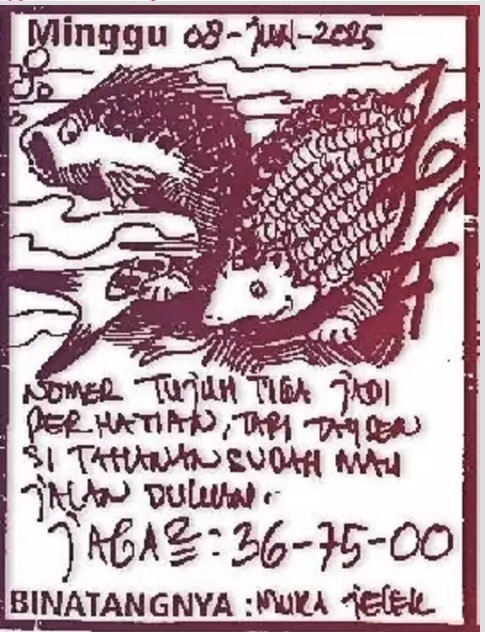 Minggu 08-JUN-2025
NOMER TUJUH TIGA JADI
PERHATIAN, TAPI
SI TAHANAN SUDAH MAU
JALAN DULUAN.
JAGA2 : 36-75-00
BINATANGNYA : MUKA JELEK